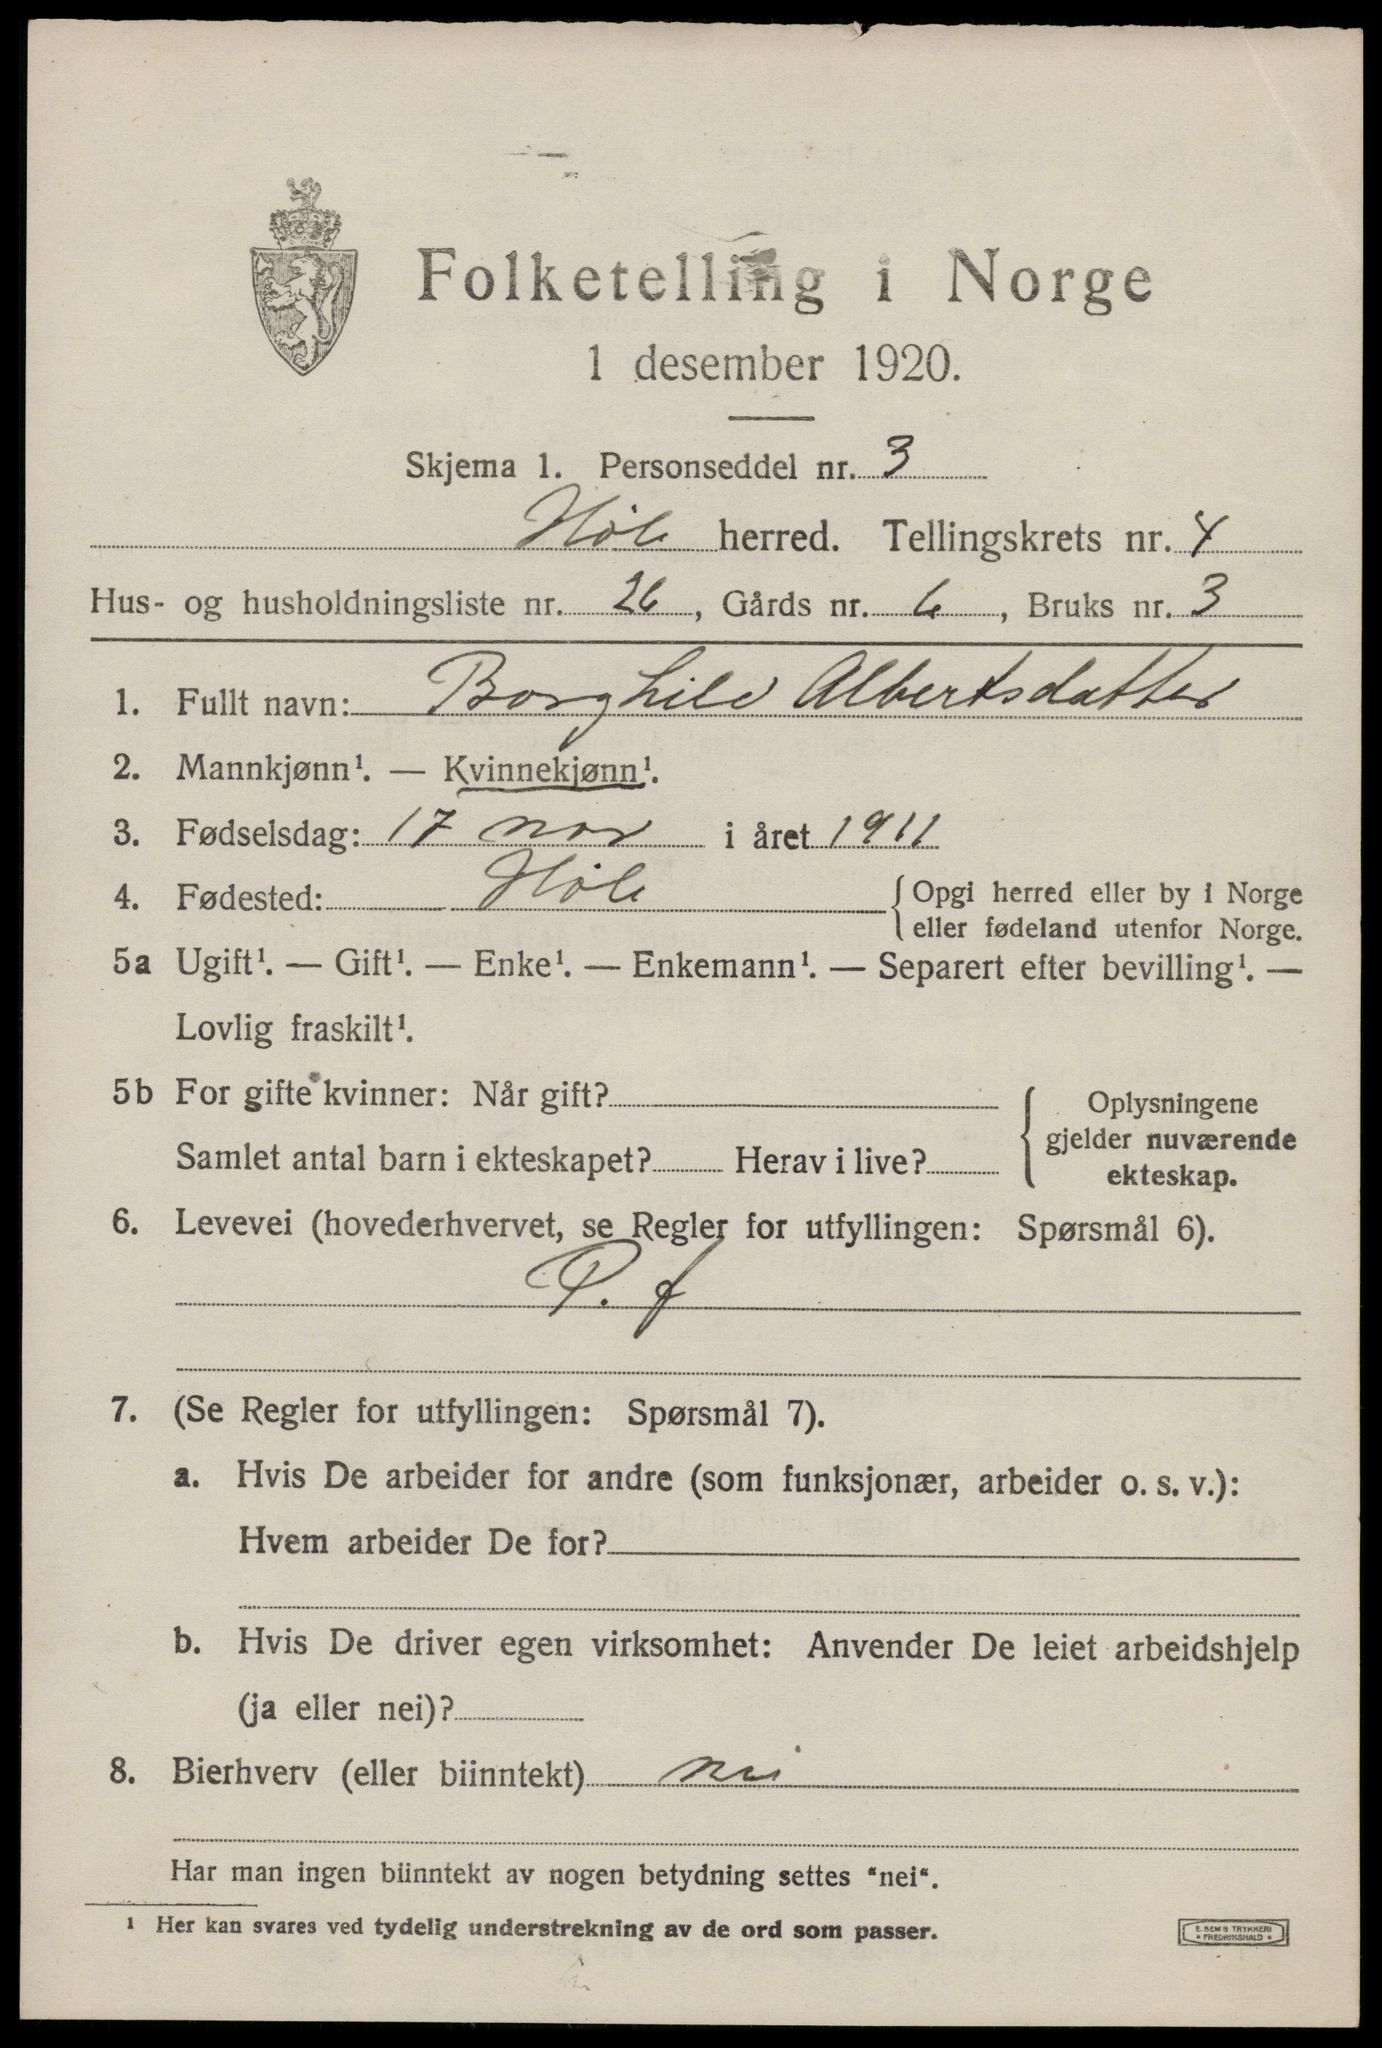 Folketelling i Norge
1 desember 1920.
Skjema 1. Personseddel nr. 3
Høle herred. Tellingskrets nr. 4
Hus- og husholdningsliste nr. 26, Gårds nr. 6, Bruks nr. 3
1. Fullt navn: Borghild Albertsdatter
2. Mannkjønn¹. — Kvinnekjønn¹.
3. Fødselsdag: 17 nov i året 1911
4. Fødested: Høle { Opgi herred eller by i Norge
eller fødeland utenfor Norge.
5a Ugift¹. — Gift¹. — Enke¹. — Enkemann¹. — Separert efter bevilling¹. —
Lovlig fraskilt¹.
5b For gifte kvinner: Når gift?
Samlet antal barn i ekteskapet? Herav i live?
Oplysningene
gjelder nuværende
ekteskap.
6. Levevei (hovederhvervet, se Regler for utfyllingen: Spørsmål 6).
P. f
7. (Se Regler for utfyllingen: Spørsmål 7).
a. Hvis De arbeider for andre (som funksjonær, arbeider o. s. v.):
Hvem arbeider De for?
b. Hvis De driver egen virksomhet: Anvender De leiet arbeidshjelp
(ja eller nei)?
8. Bierhverv (eller biinntekt) nei
Har man ingen biinntekt av nogen betydning settes "nei".
¹ Her kan svares ved tydelig understrekning av de ord som passer.
E. SEM'S TRYKKERI
• FREDRIKSHALD •